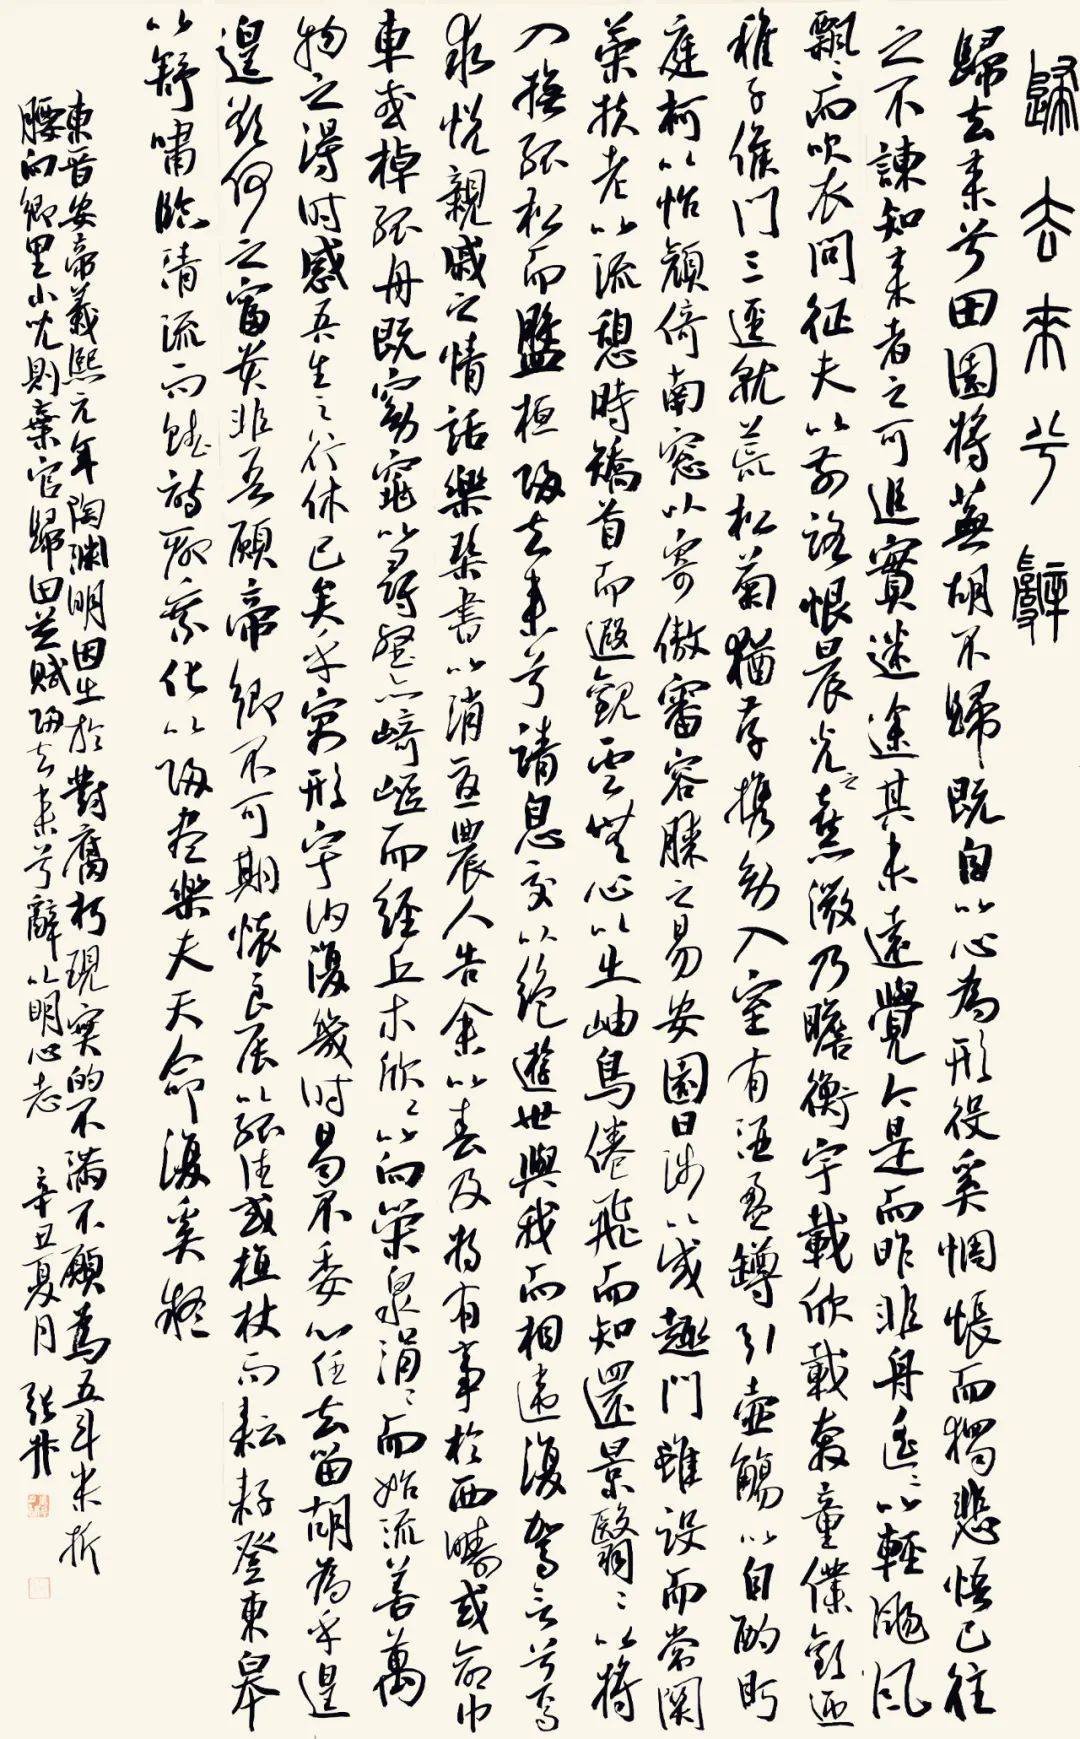 歸去來兮辭
歸去來兮田園將蕪胡不歸既自以心為形役奚惆悵而獨悲悟已往
之不諫知來者之可追實迷途其未遠覺今是而昨非舟遙〻以輕颺風
飄〻而吹衣問征夫以前路恨晨光之熹微乃瞻衡宇載欣載奔童僕歡迎
稚子候門三逕就荒松菊猶存攜幼入室有酒盈罇引壺觴以自酌眄
庭柯以怡顏倚南窗以寄傲審容膝之易安園日涉以成趣門雖設而常關
策扶老以流憩時矯首而遐觀雲無心以出岫鳥倦飛而知還景翳〻以將
入撫孤松而盤桓歸去來兮請息交以絕遊世與我而相違復駕言兮焉
求悅親戚之情話樂琴書以消憂農人告余以春及將有事於西疇或命巾
車或棹孤舟既窈窕以尋壑亦崎嶇而經丘木欣〻以向榮泉涓〻而始流善萬
物之得時感吾生之行休已矣乎寓形宇內復幾時曷不委心任去留胡為乎遑
遑欲何之富貴非吾願帝鄉不可期懷良辰以孤往或植杖而耘耔登東皋
以舒嘯臨清流而賦詩聊乘化以歸盡樂夫天命復奚疑
東晉安帝義熙元年陶淵明因出於對腐朽現實的不滿不願為五斗米折
腰向鄉里小兒則棄官歸田並賦歸去來兮辭以明心志 辛丑夏月 張